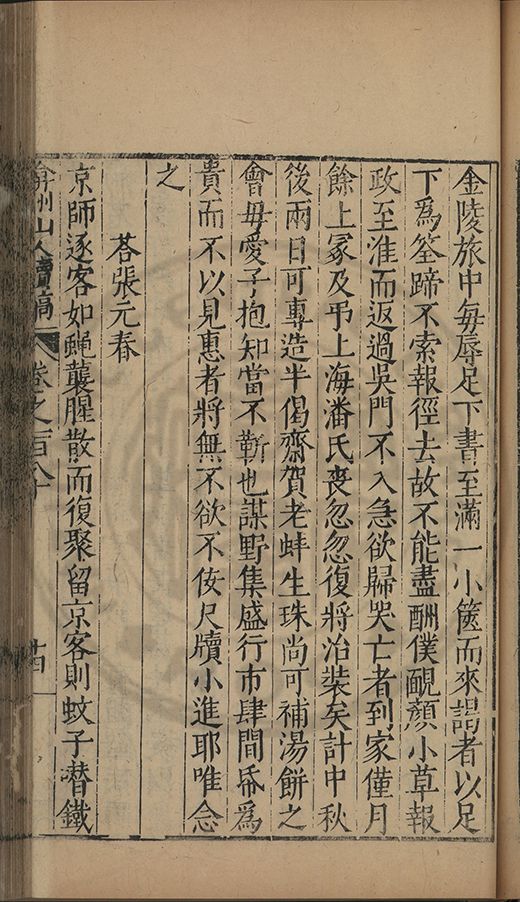 金陵旅中每辱足下書至滿一小篋而來謁者以足
下爲筌蹄不索報徑去故不能盡酬僕靦顏小草報
政至淮而返過吳門不入急欲歸哭亡者到家僅月
餘上冢及弔上海潘氏喪忽忽復將治裝矣計中秋
後兩日可專造半偈齋賀老蚌生珠尚可補湯餅之
會毋愛子抱知當不靳也謀野集盛行市肆間帋爲
貴而不以見惠者將無不欲不佞尺牘小進耶唯念
之
荅張元春
京師逐客如蠅襲腥散而復聚留京客則蚊子噆鐵
弇州山人續稿 卷之一百八十 廿四